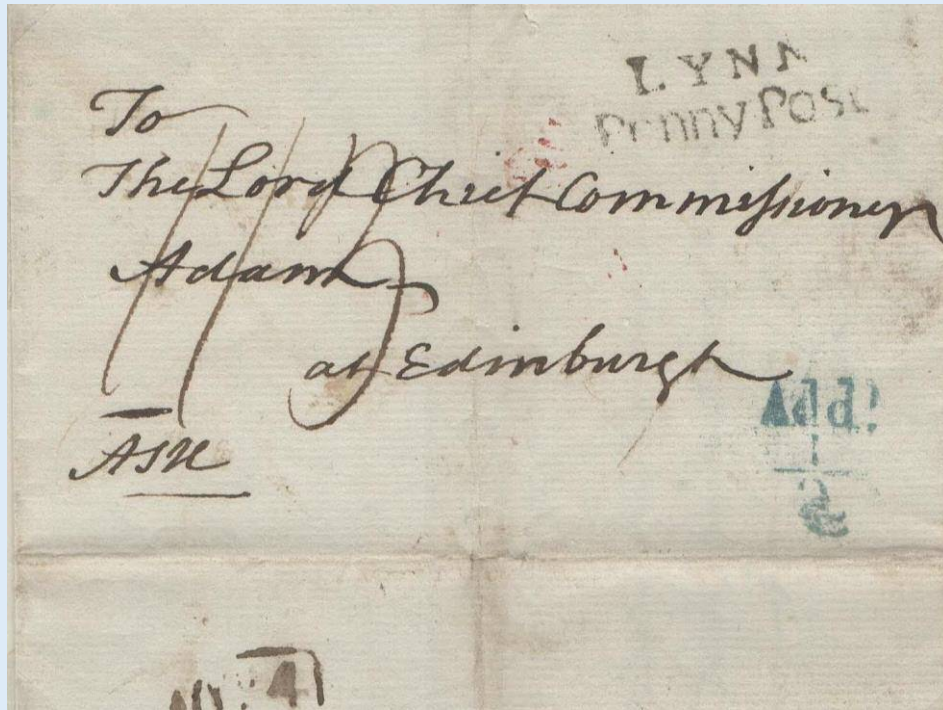 LYNN
Penny Post
To
The Lord Chief Commissioner
Adam
at Edinburgh
Add!
1
2
No. 4